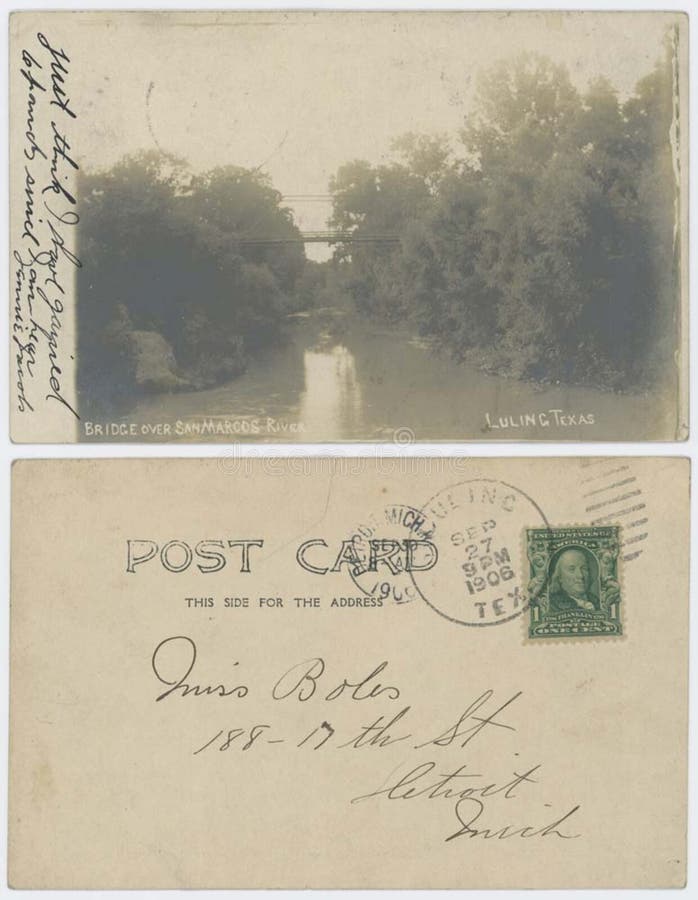 Just think I have gained
6 pounds
Jennie Jacobs
BRIDGE OVER SAN MARCOS RIVER
LULING TEXAS
dreamstime
POST CARD
THIS SIDE FOR THE ADDRESS
DETROIT MICH.
SEP 30
1906
LULING
SEP
27
9 PM
1906
TEX
UNITED STATES OF
AMERICA
1 1
POSTAGE
ONE CENT
Miss Boles
188-17th St
Detroit
Mich